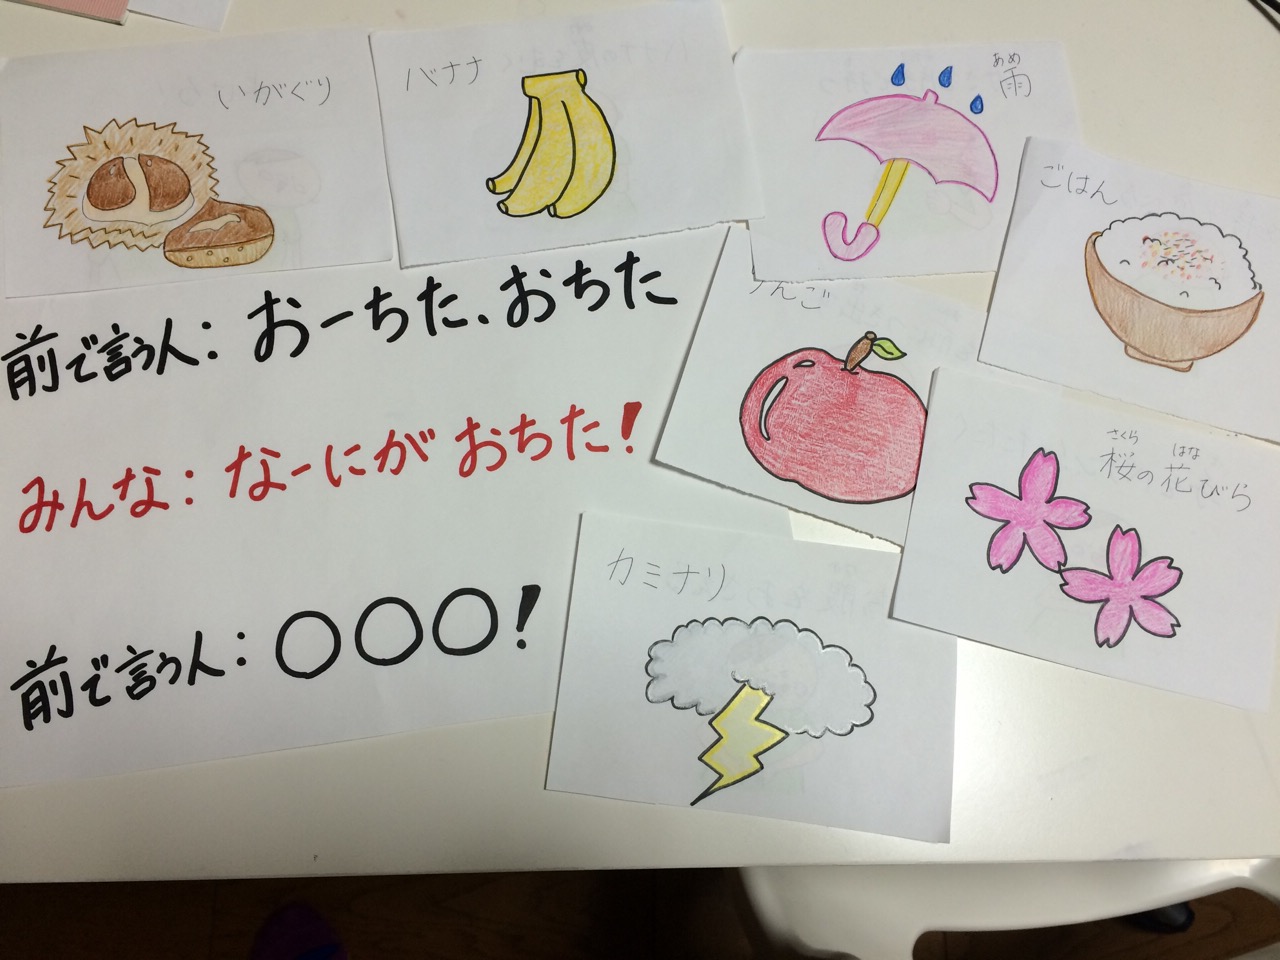 いがぐり
バナナ
あめ
雨
ごはん
りんご
さくら はな
桜の花びら
カミナリ
前で言う人: おーちた、おちた
みんな: なーにが おちた!
前で言う人: 〇〇〇!